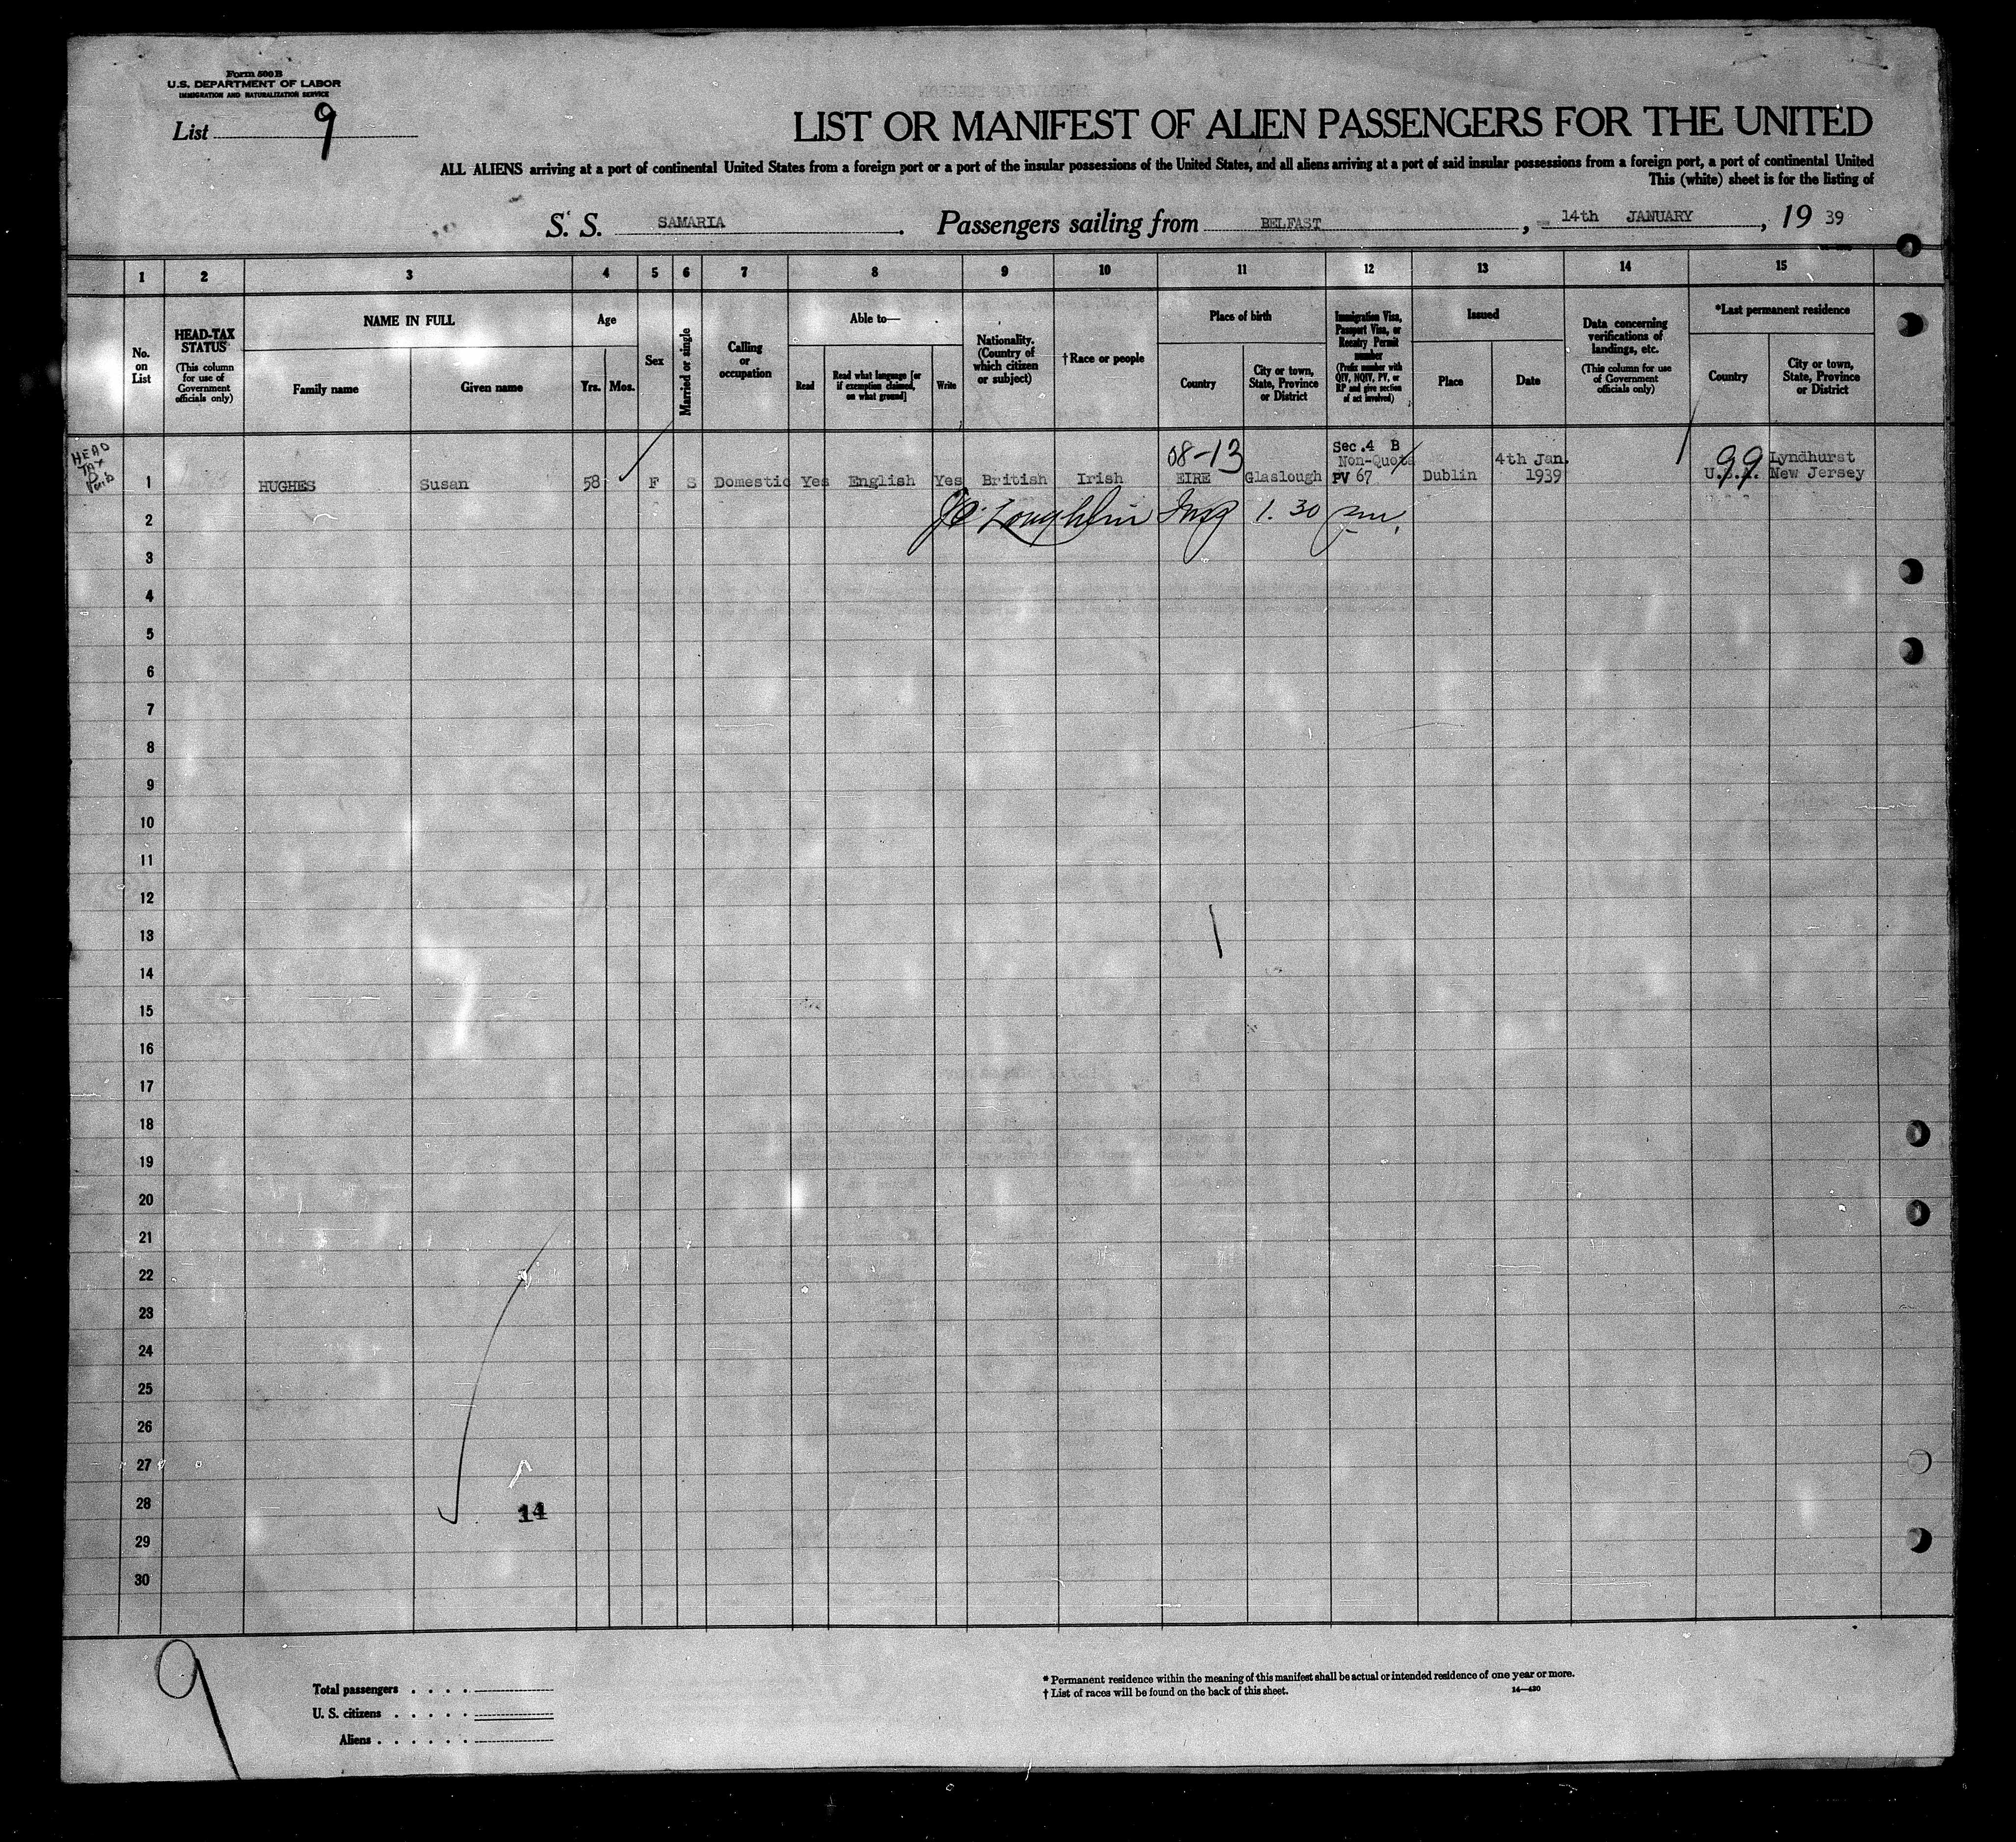 Form 500 B
U.S. DEPARTMENT OF LABOR
IMMIGRATION AND NATURALIZATION SERVICE
List 9
LIST OR MANIFEST OF ALIEN PASSENGERS FOR THE UNITED
ALL ALIENS arriving at a port of continental United States from a foreign port or a port of the insular possessions of the United States, and all aliens arriving at a port of said insular possessions from a foreign port, a port of continental United
This (white) sheet is for the listing of
S. S. SAMARIA. Passengers sailing from BELFAST, 14th JANUARY, 19 39
1 2 3 4 5 6 7 8 9 10 11 12 13 14 15
No. on List
HEAD-TAX STATUS
(This column for use of Government officials only)
NAME IN FULL
Family name
Given name
Age
Yrs. Mos.
Sex
Married or single
Calling or occupation
Able to—
Read
Read what language [or if exemption claimed, on what ground]
Write
Nationality. (Country of which citizen or subject)
†Race or people
Place of birth
Country
City or town, State, Province or District
Immigration Visa, Passport Visa, or Reentry Permit number
(Prefix number with QIV, NQIV, PV, or RP and give section of act involved)
Issued
Place
Date
Data concerning verifications of landings, etc.
(This column for use of Government officials only)
*Last permanent residence
Country
City or town, State, Province or District
HEAD
TAX
08-13
Sec.4 B
Non-Quota
4th Jan.
99
Lyndhurst
1 HUGHES Susan 58 F S Domestic Yes English Yes British Irish EIRE Glaslough PV 67 Dublin 1939 U.S.A. New Jersey
2 Loughlin Insp 1.30 pm.
3
4
5
6
7
8
9
10
11
12
13
14
15
16
17
18
19
20
21
22
23
24
25
26
27
28 14
29
30
9
Total passengers
U. S. citizens
Aliens
* Permanent residence within the meaning of this manifest shall be actual or intended residence of one year or more.
† List of races will be found on the back of this sheet.
14—430